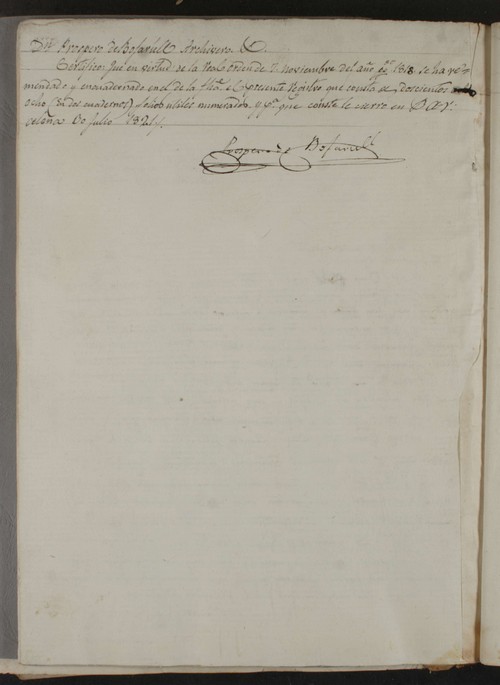 Dn. Prospero de Bofarull Archivero &.
Certifico: que en virtud de la Real orden de 7. noviembre del año 1818 se ha reco-
mendado y encuadernado en el de la fha. el presente registro que consta de doscientos
ocho (en dos cuadernos) folios utiles numerados y pa. que conste le cierro en Bar-
celona Julio 1821.
Prospero de Bofarull